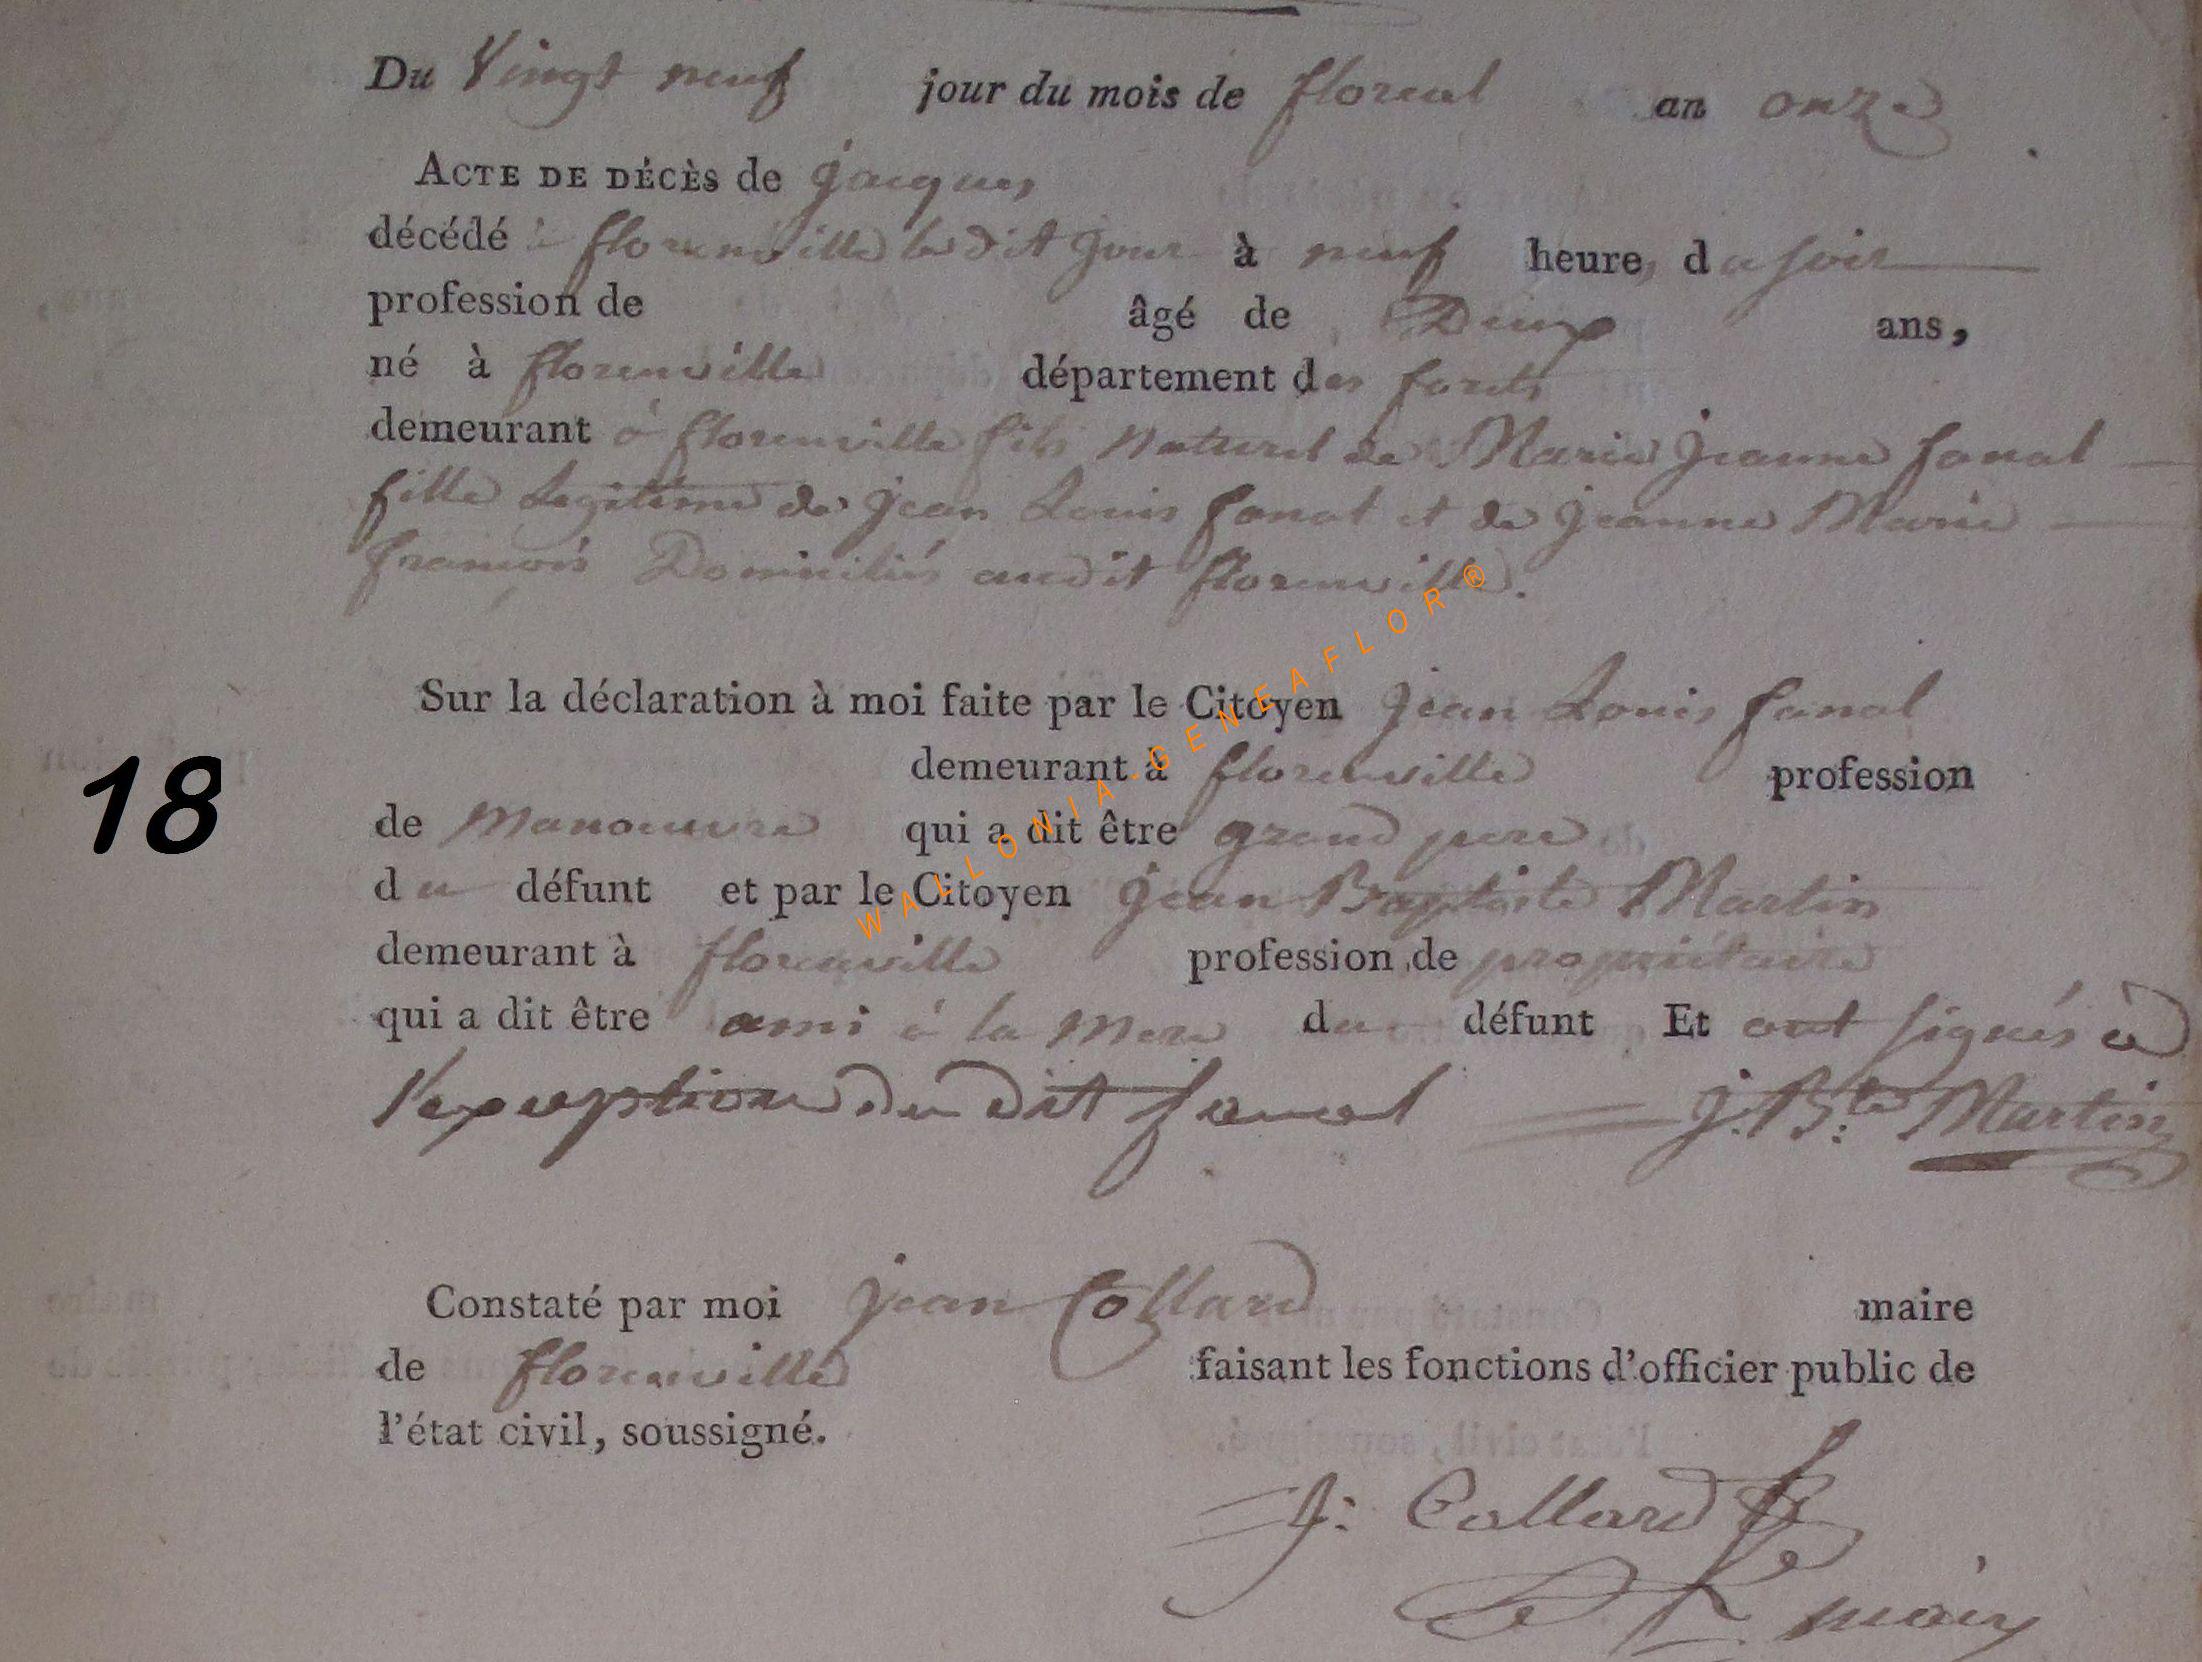 Du Vingt neuf jour du mois de floreal an onze
ACTE DE DÉCÈS de jacques
décédé à florenville le dit jour à neuf heures du soir
profession de âgé de Deux ans,
né à florenville département des forets
demeurant à florenville fils naturel de Marie jeanne fanal
fille Legitime de jean Louis fanal et de jeanne Marie
françois Domiciliés audit florenville.
Sur la déclaration à moi faite par le Citoyen jean Louis fanal
demeurant à florenville profession
de manoeuvre qui a dit être grand pere
du défunt et par le Citoyen jean Baptiste Martin
demeurant à florenville profession de propriétaire
qui a dit être ami à la mere du défunt Et ont signés à
l'exception du dit fanal j. Bte: Martin
18
Constaté par moi jean Collard maire
de florenville faisant les fonctions d'officier public de
l'état civil, soussigné.
j: Collard
maire
WALLONIA-GENEAFLOR®